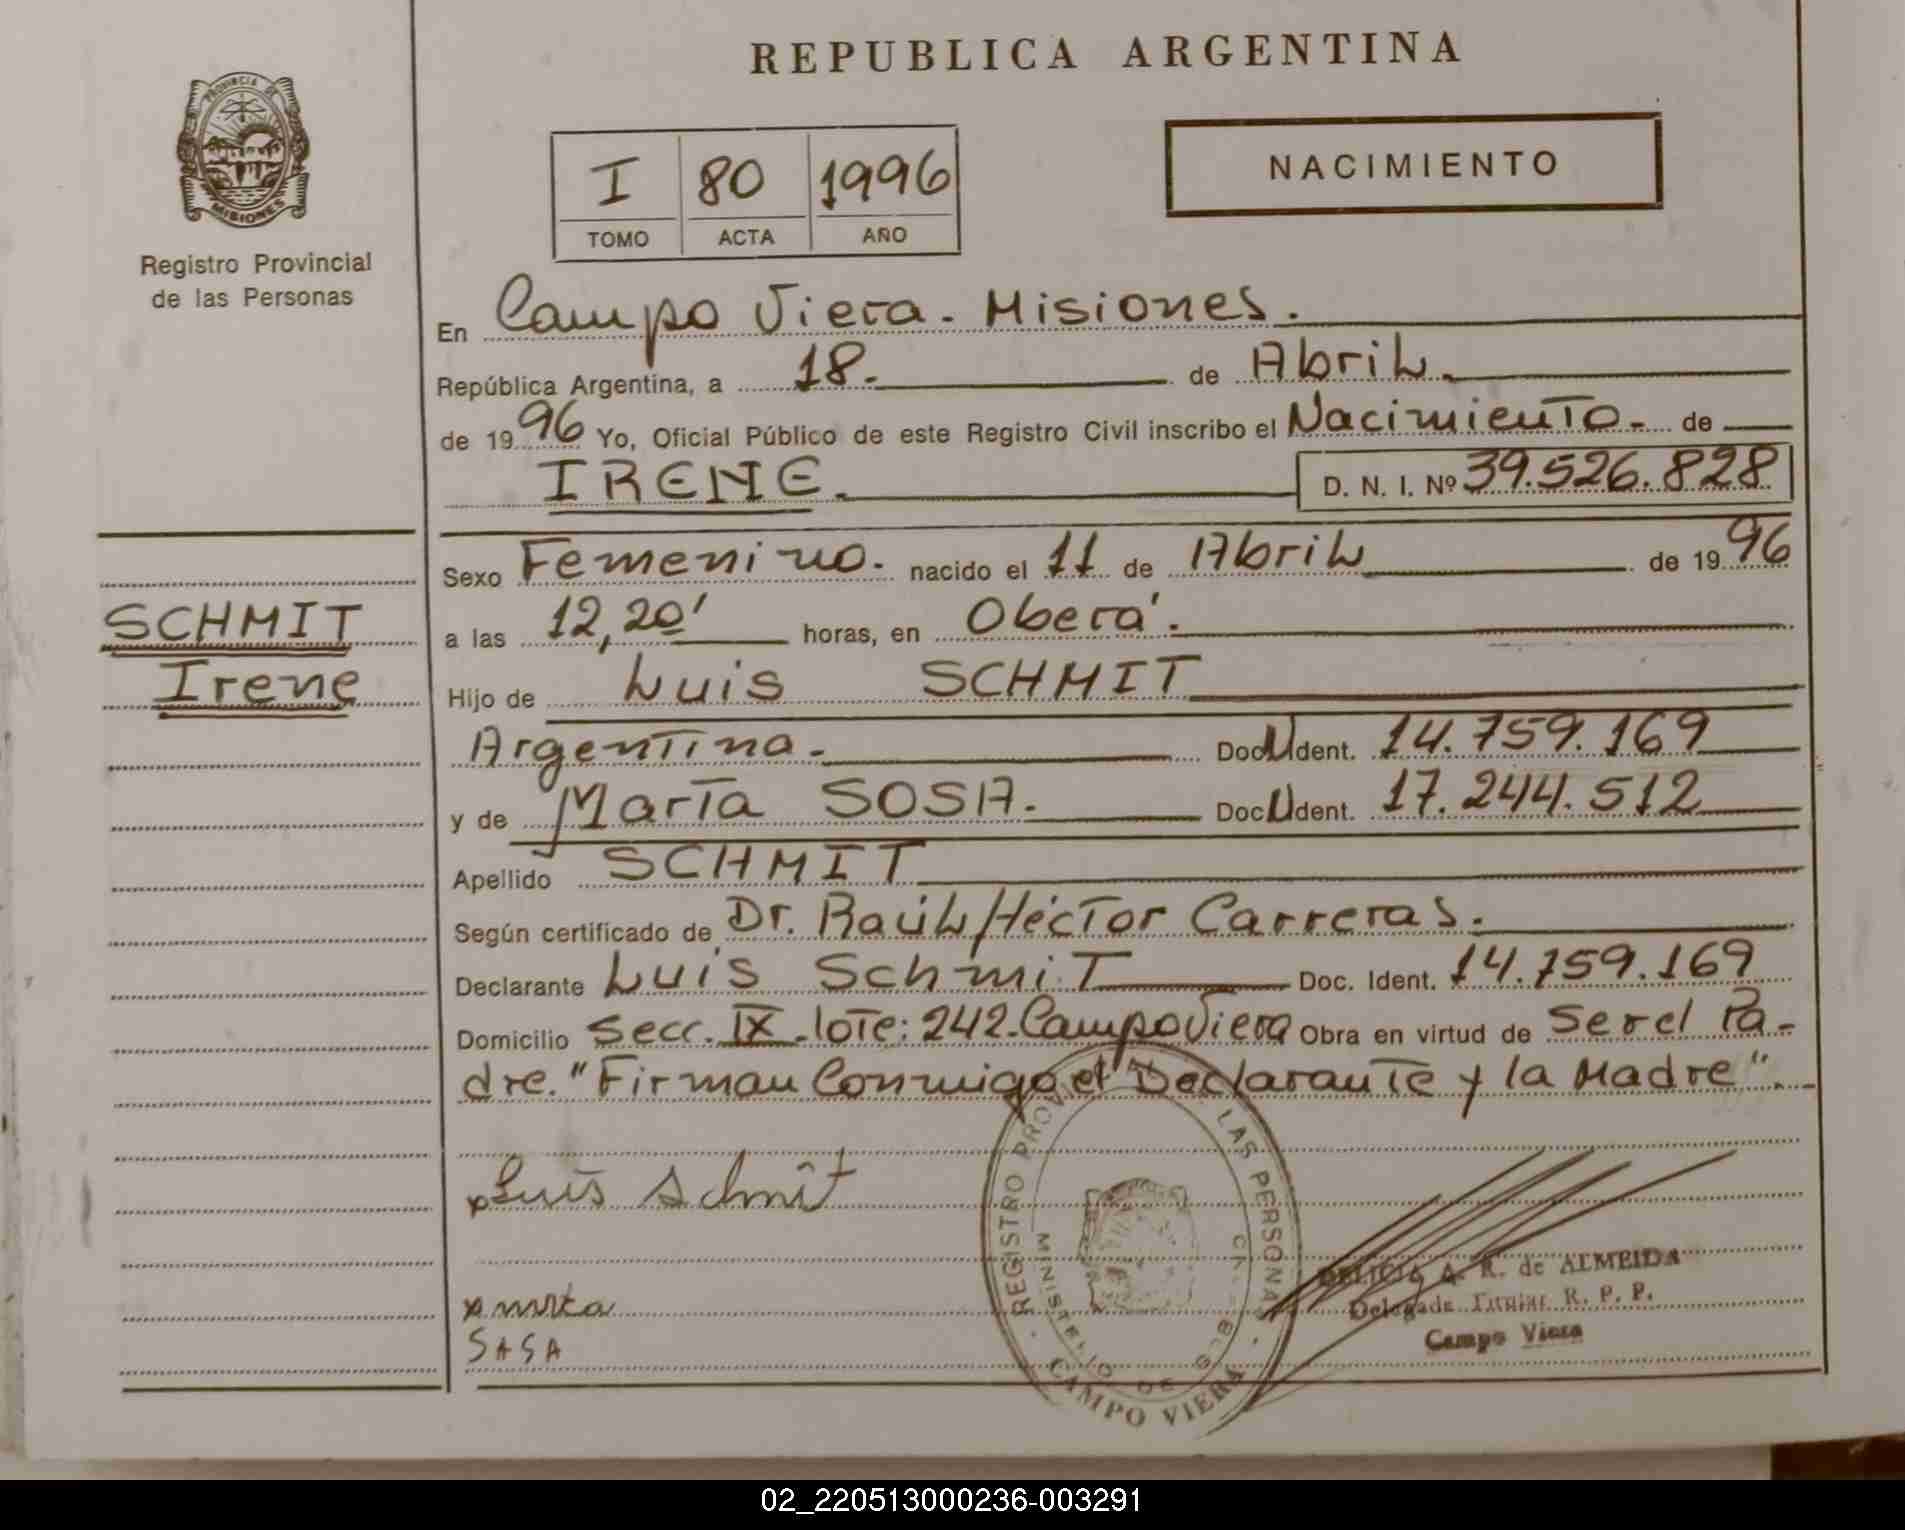 REPUBLICA ARGENTINA
PROVINCIA DE
MISIONES
Registro Provincial
de las Personas
I 80 1996
TOMO ACTA AÑO
NACIMIENTO
En Campo Viera. Misiones.
República Argentina, a 18. de Abril.
de 1996 Yo, Oficial Público de este Registro Civil inscribo el Nacimiento. de
IRENE. D. N. I. Nº 39.526.828
Sexo Femenino. nacido el 11 de Abril de 1996
SCHMIT
Irene
a las 12,20' horas, en Oberá.
Hijo de Luis SCHMIT
Argentina. Doc. Ident. 14.759.169
y de Marta SOSA. Doc. Ident. 17.244.512
Apellido SCHMIT
Según certificado de Dr. Raúl Héctor Carreras.
Declarante Luis Schmit Doc. Ident. 14.759.169
Domicilio Secc. IX. lote: 242. Campo Viera Obra en virtud de Ser el Pa-
dre. "Firman Conmigo el Declarante y la Madre".
x Luis Schmit
x
SASA
REGISTRO LAS PERSONAS
MINISTERIO DE
CAMPO VIERA
DELICIA A. R. de ALMEIDA
Delegada Titular R. P. P.
Campo Viera
02_220513000236-003291